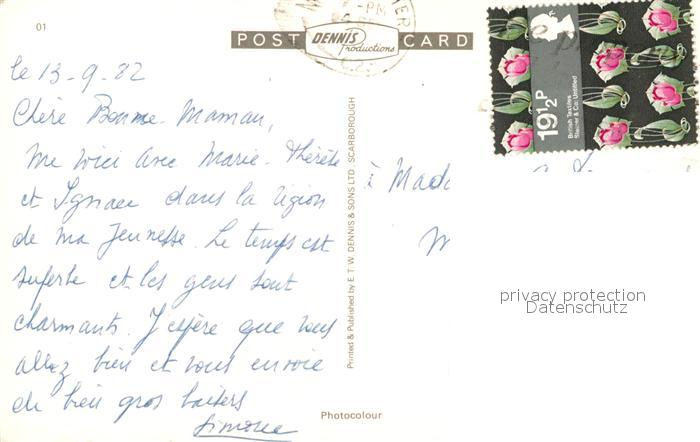 01
POST CARD
DENNIS
Productions
PM
19½P
British Textiles
Steiner & Co: Untitled
le 13-9-82
Chère Bonne-Maman,
me voici avec Marie-Thérèse
et Ignace dans la région
de ma jeunesse. Le temps est
superbe et les gens sont
charmants. J'espère que vous
allez bien et vous envoie
de bien gros baisers
Simone
à Mada
M
Printed & Published by E. T. W. DENNIS & SONS LTD., SCARBOROUGH
privacy protection
Datenschutz
Photocolour